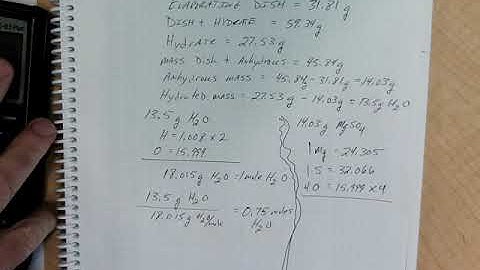 EVAPORATING DISH = 31.81 g
DISH + HYDRATE = 59.34g
HydrATE = 27.53 g
mass Dish + Anhydrous = 45.84g
Anhydrous mass = 45.84g - 31.81g = 14.03g
Hydrated mass = 27.53g - 14.03g = 13.5g H2O
13.5 g H2O
H = 1.008 x 2
O = 15.999
18.015g H2O = 1 mole H2O
13.5 g H2O
18.015g H2O/mole
= 0.75 moles H2O
14.03g MgSO4
1 Mg = 24.305
1 S = 32.066
4 O = 15.999 x 4